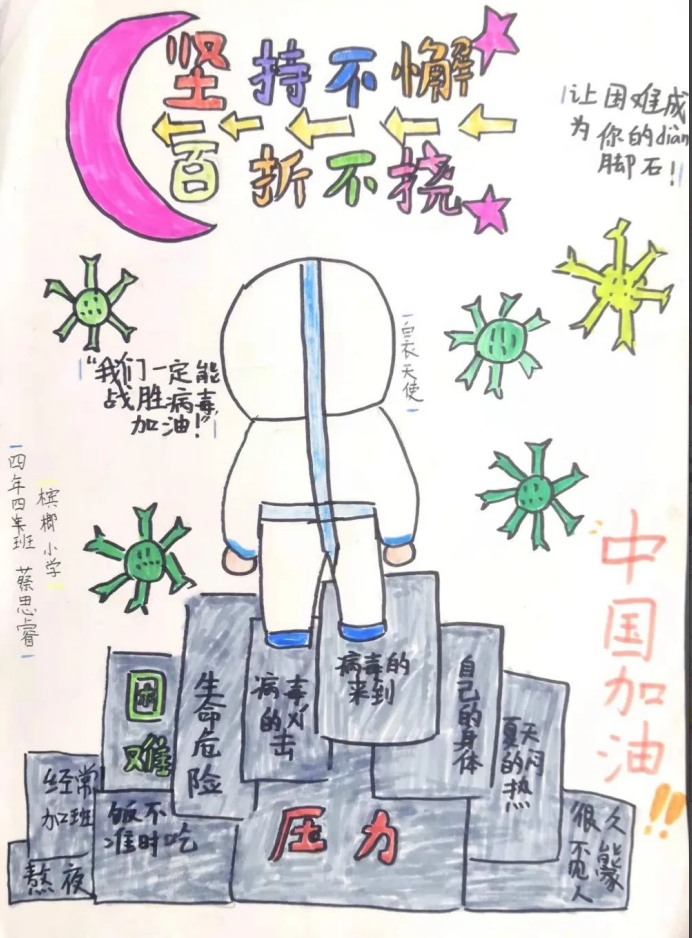 坚持不懈
百折不挠
让困难成
为你的dian
脚石!
白衣天使
"我们一定能
战胜病毒,
加油!"
四年四班 蔡思睿
槟榔小学
中国加油!!
困难
生命危险
病毒
的
击
病毒的
来到
自己的
身体
夏天
的
热
经常
加班
饭不
准时吃
压力
很久
不能见
家人
熬夜